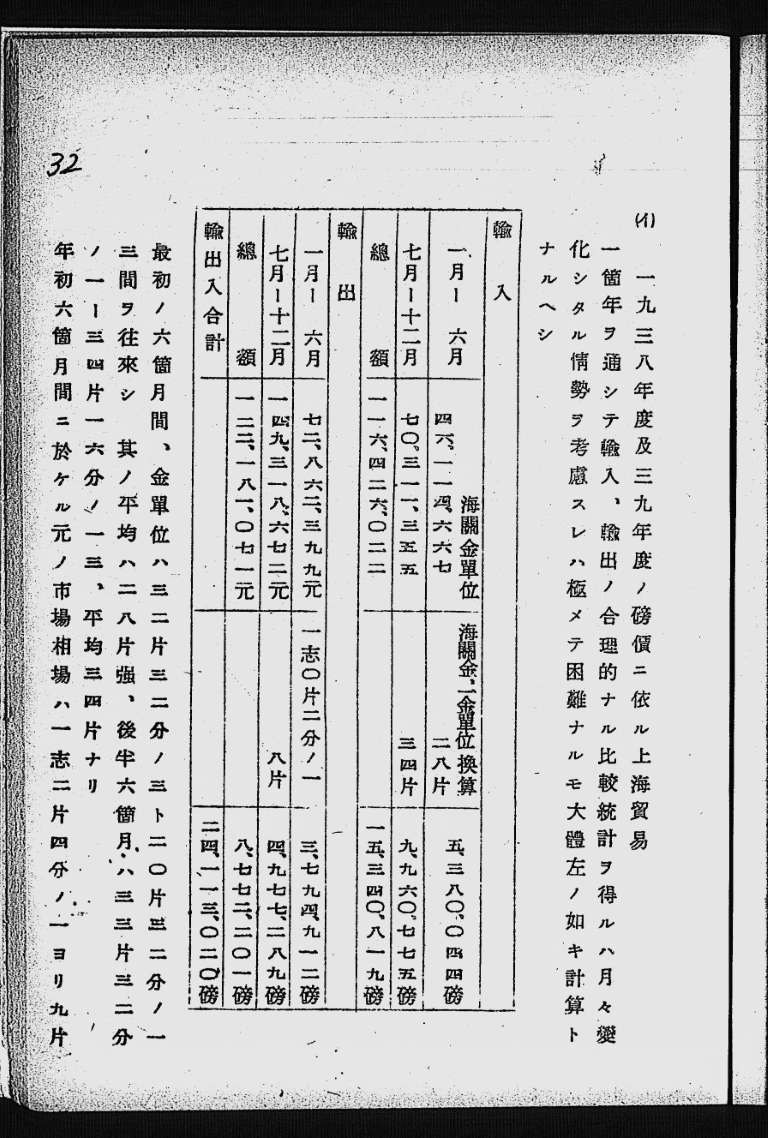 (イ) 一九三八年度及三九年度ノ磅價ニ依ル上海貿易
一箇年ヲ通シテ輸入、輸出ノ合理的ナル比較統計ヲ得ルハ月々變
化シタル情勢ヲ考慮スレハ極メテ困難ナルモ大體左ノ如キ計算ト
ナルヘシ
輸入
海關金單位 海關金、一金單位換算
一月ー六月 四六、一一四、六六七 二八片 五、三八〇、〇四四磅
七月ー十二月 七〇、三一一、三五五 三四片 九、九六〇、七七五磅
總額 一一六、四二六、〇二二 一五、三四〇、八一九磅
輸出
一月ー六月 七二、八六二、三九九元 一志〇片二分ノ一 三、七九四、九一二磅
七月ー十二月 一四九、三一八、六七二元 八片 四、九七七、二八九磅
總額 一二二、一八一、〇七一元 八、七七二、二〇一磅
輸出入合計 二四、一一三、〇二〇磅
最初ノ六箇月間、金單位ハ三二片三二分ノ三ト二〇片三二分ノ一
三間ヲ往來シ其ノ平均ハ二八片强、後半六箇月ハ三三片三二分
ノ一ー三四片一六分ノ一三、平均三四片ナリ
年初六箇月間ニ於ケル元ノ市場相場ハ一志二片四分ノ一ヨリ九片
32